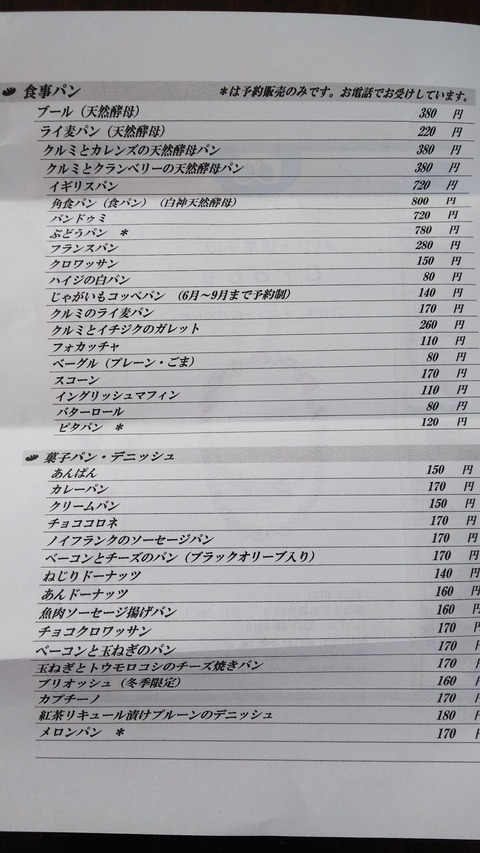 食事パン ＊は予約販売のみです。お電話でお受けしています。
ブール（天然酵母） 380 円
ライ麦パン（天然酵母） 220 円
クルミとカレンズの天然酵母パン 380 円
クルミとクランベリーの天然酵母パン 380 円
イギリスパン 720 円
角食パン（食パン）（白神天然酵母） 800 円
パンドゥミ 720 円
ぶどうパン ＊ 780 円
フランスパン 280 円
クロワッサン 150 円
ハイジの白パン 80 円
じゃがいもコッペパン （6月～9月まで予約制） 140 円
クルミのライ麦パン 170 円
クルミとイチジクのガレット 260 円
フォカッチャ 110 円
ベーグル（プレーン・ごま） 80 円
スコーン 170 円
イングリッシュマフィン 110 円
バターロール 80 円
ピタパン ＊ 120 円
菓子パン・デニッシュ
あんぱん 150 円
カレーパン 170 円
クリームパン 150 円
チョココロネ 170 円
ノイフランクのソーセージパン 170 円
ベーコンとチーズのパン（ブラックオリーブ入り） 170 円
ねじりドーナッツ 140 円
あんドーナッツ 160 円
魚肉ソーセージ揚げパン 160 円
チョコクロワッサン 170 円
ベーコンと玉ねぎのパン 170 円
玉ねぎとトウモロコシのチーズ焼きパン 170 円
ブリオッシュ（冬季限定） 160 円
カプチーノ 170 円
紅茶リキュール漬けプルーンのデニッシュ 180 円
メロンパン ＊ 170 円